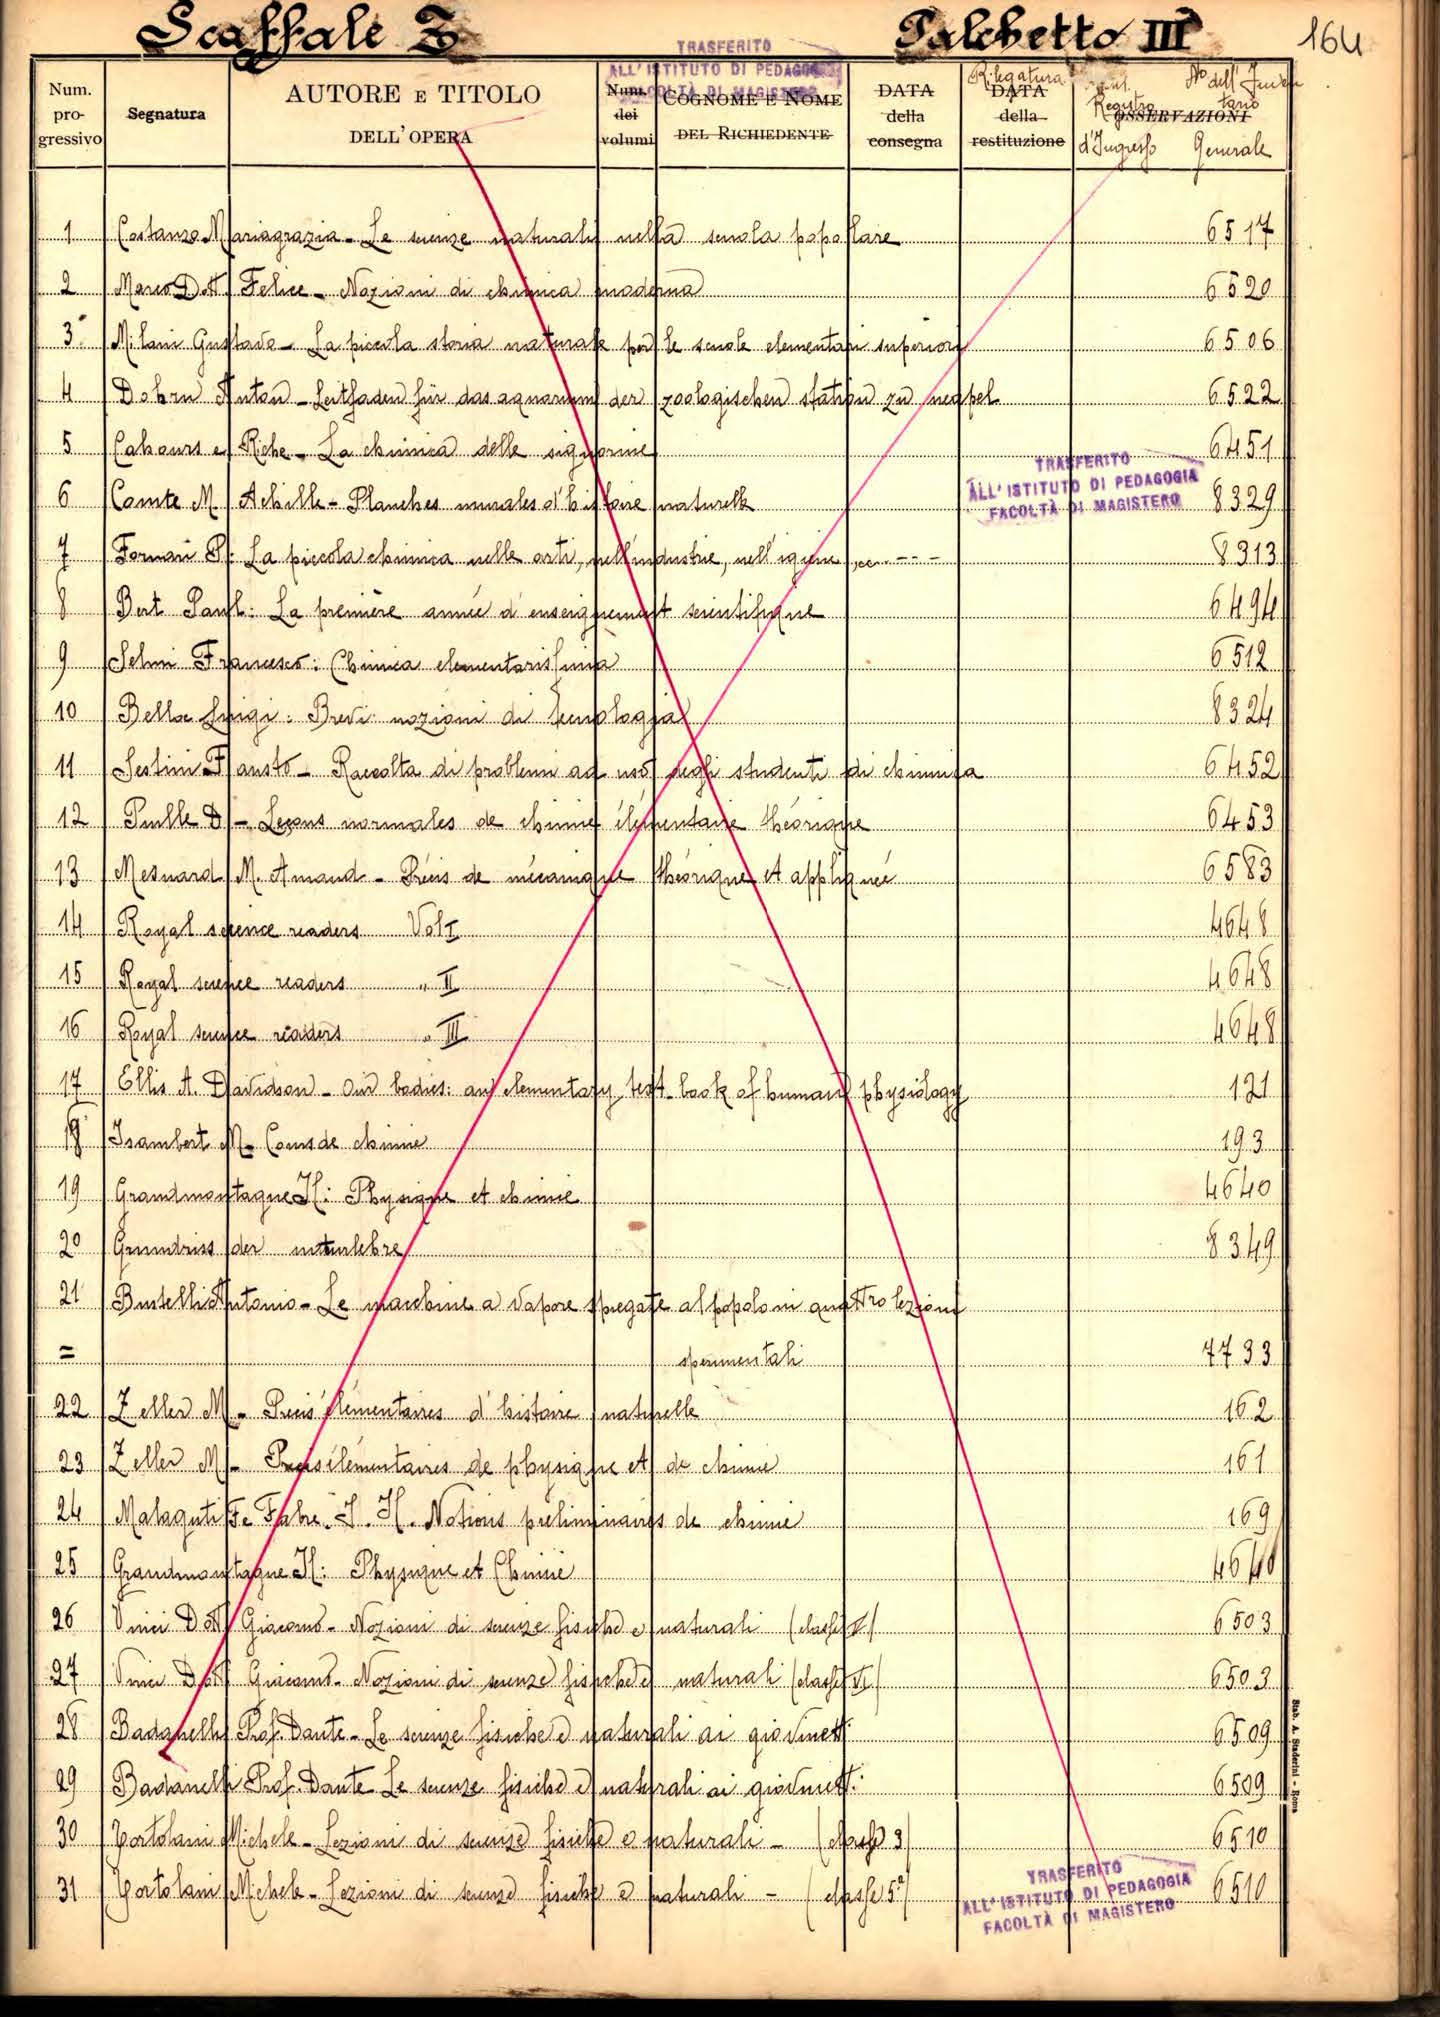 Scaffale Z Palchetto III 164
TRASFERITO
ALL'ISTITUTO DI PEDAGOGIA
FACOLTÀ DI MAGISTERO
Num. progressivo Segnatura AUTORE E TITOLO DELL'OPERA Num. dei volumi COGNOME E NOME DEL RICHIEDENTE DATA della consegna Rilegatura DATA della restituzione OSSERVAZIONI Registro d'Ingresso No dell' Inventario Generale
1 Costanzo Mariagrazia - Le scienze naturali nella scuola popolare 6517
2 Marco Dott. Felice - Nozioni di chimica moderna 6520
3 Milani Gustavo - La piccola storia naturale per le scuole elementari superiori 6506
4 Dohrn Anton - Leitfaden für das aquarium der zoologischen station zu neapel 6522
5 Cahours e Riche - La chimica delle signorine 6451
TRASFERITO
ALL'ISTITUTO DI PEDAGOGIA
FACOLTÀ DI MAGISTERO
6 Comte M. Achille - Planches murales d'histoire naturelle 8329
7 Fornari P: La piccola chimica nelle arti, nell'industrie, nell'igiene, ecc. - - - 8313
8 Bert Paul: La première année d'enseignement scientifique 6494
9 Selmi Francesco: Chimica elementarissima 6512
10 Belloc Luigi: Brevi nozioni di tecnologia 8324
11 Sestini Fausto - Raccolta di problemi ad uso degli studenti di chimica 6452
12 D - Leçons normales de chimie élémentaire théorique 6453
13 Mesnard M. Amand - Précis de mécanique théorique et appliquée 6583
14 Royal science readers Vol I 4648
15 Royal science readers " II 4648
16 Royal science readers " III 4648
17 Ellis A. Davidson - Our bodies: an elementary text-book of human physiology 121
18 Isambert M - Cours de chimie 193
19 Grandmontagne H: Physique et chimie 4640
20 Grundriss der naturlehre 8349
21 Bustelli Antonio - Le macchine a vapore spiegate al popolo in quattro lezioni
= sperimentali 7733
22 Zeller M - Précis élémentaires d'histoire naturelle 162
23 Zeller M - Précis élémentaires de physique et de chimie 161
24 Malaguti F e Fabre J. H. Notions préliminaires de chimie 169
25 Grandmontagne H: Physique et Chimie 4640
26 Vinci Dott Giacomo - Nozioni di scienze fisiche e naturali (classe V) 6503
27 Vinci Dott Giacomo - Nozioni di scienze fisiche e naturali (classe VI) 6503
28 Badanelli Prof. Dante - Le scienze fisiche e naturali ai giovinetti 6509
29 Badanelli Prof. Dante Le scienze fisiche e naturali ai giovinetti 6509
30 Tortolani Michele - Lezioni di scienze fisiche e naturali - (classe 3) 6510
31 Tortolani Michele - Lezioni di scienze fisiche e naturali - (classe 5ª) 6510
TRASFERITO
ALL'ISTITUTO DI PEDAGOGIA
FACOLTÀ DI MAGISTERO
Stab. A. Staderini - Roma